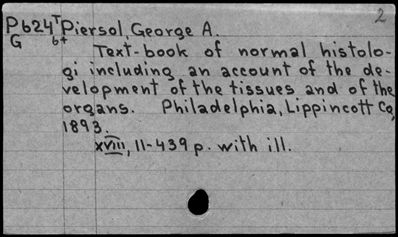 2
P624 T Piersol, George A.
G 6t
Text-book of normal histolo-
gi including an account of the de-
velopment of the tissues and of the
organs. Philadelphia, Lippincott Co,
1893.
xviii, 11-439 p. with ill.